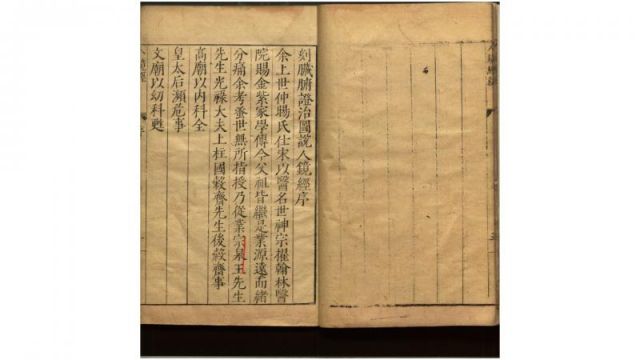 刻臟腑證治圖說人鏡經序
余上世仲暘氏仕宋以醫名世神宗擢翰林醫
院賜金紫家學傳今父祖皆繼是業源遠而緒
分痛余考蚤世無所指授乃從業宗泉王先生
先生光祿大夫上柱國㳟齊先生後㳟齊事
高廟以內科全
皇太后瀕危事
文廟以幼科甦
人鏡經
序